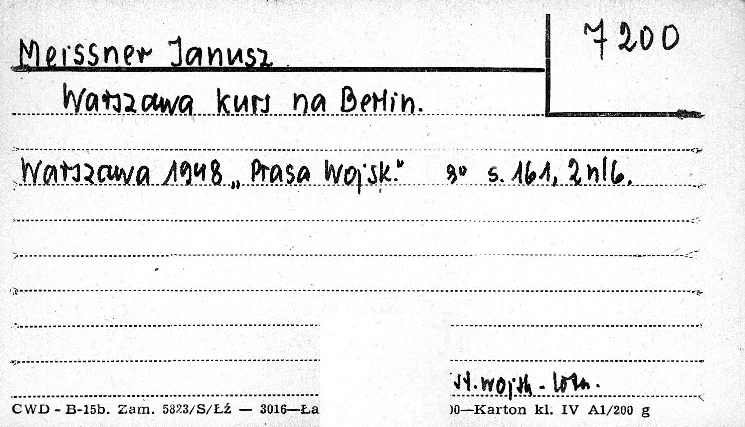 7200
Meissner Janusz
Warszawa kurs na Berlin.
Warszawa 1948 „Prasa Wojsk." 8° s. 161, 2 nlb.
st. wojsk - lotn.
CWD - B-15b. Zam. 5823/S/Łź — 3016—Ła 00—Karton kl. IV A1/200 g